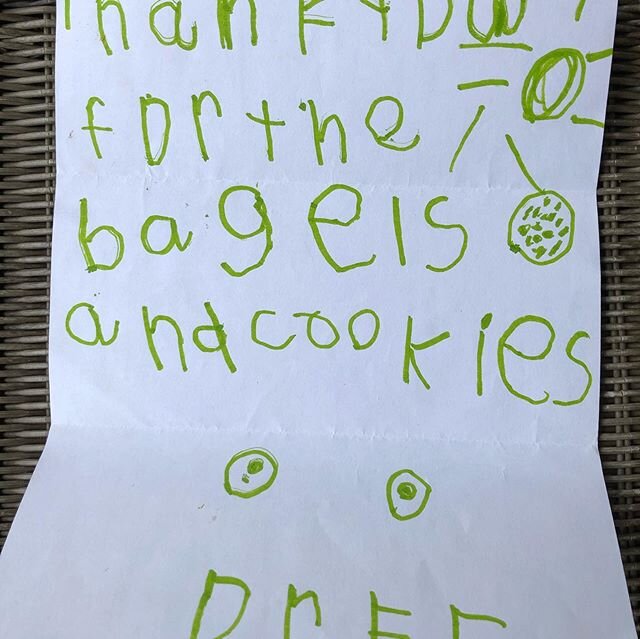 Thank you
for the
bagels
and cookies